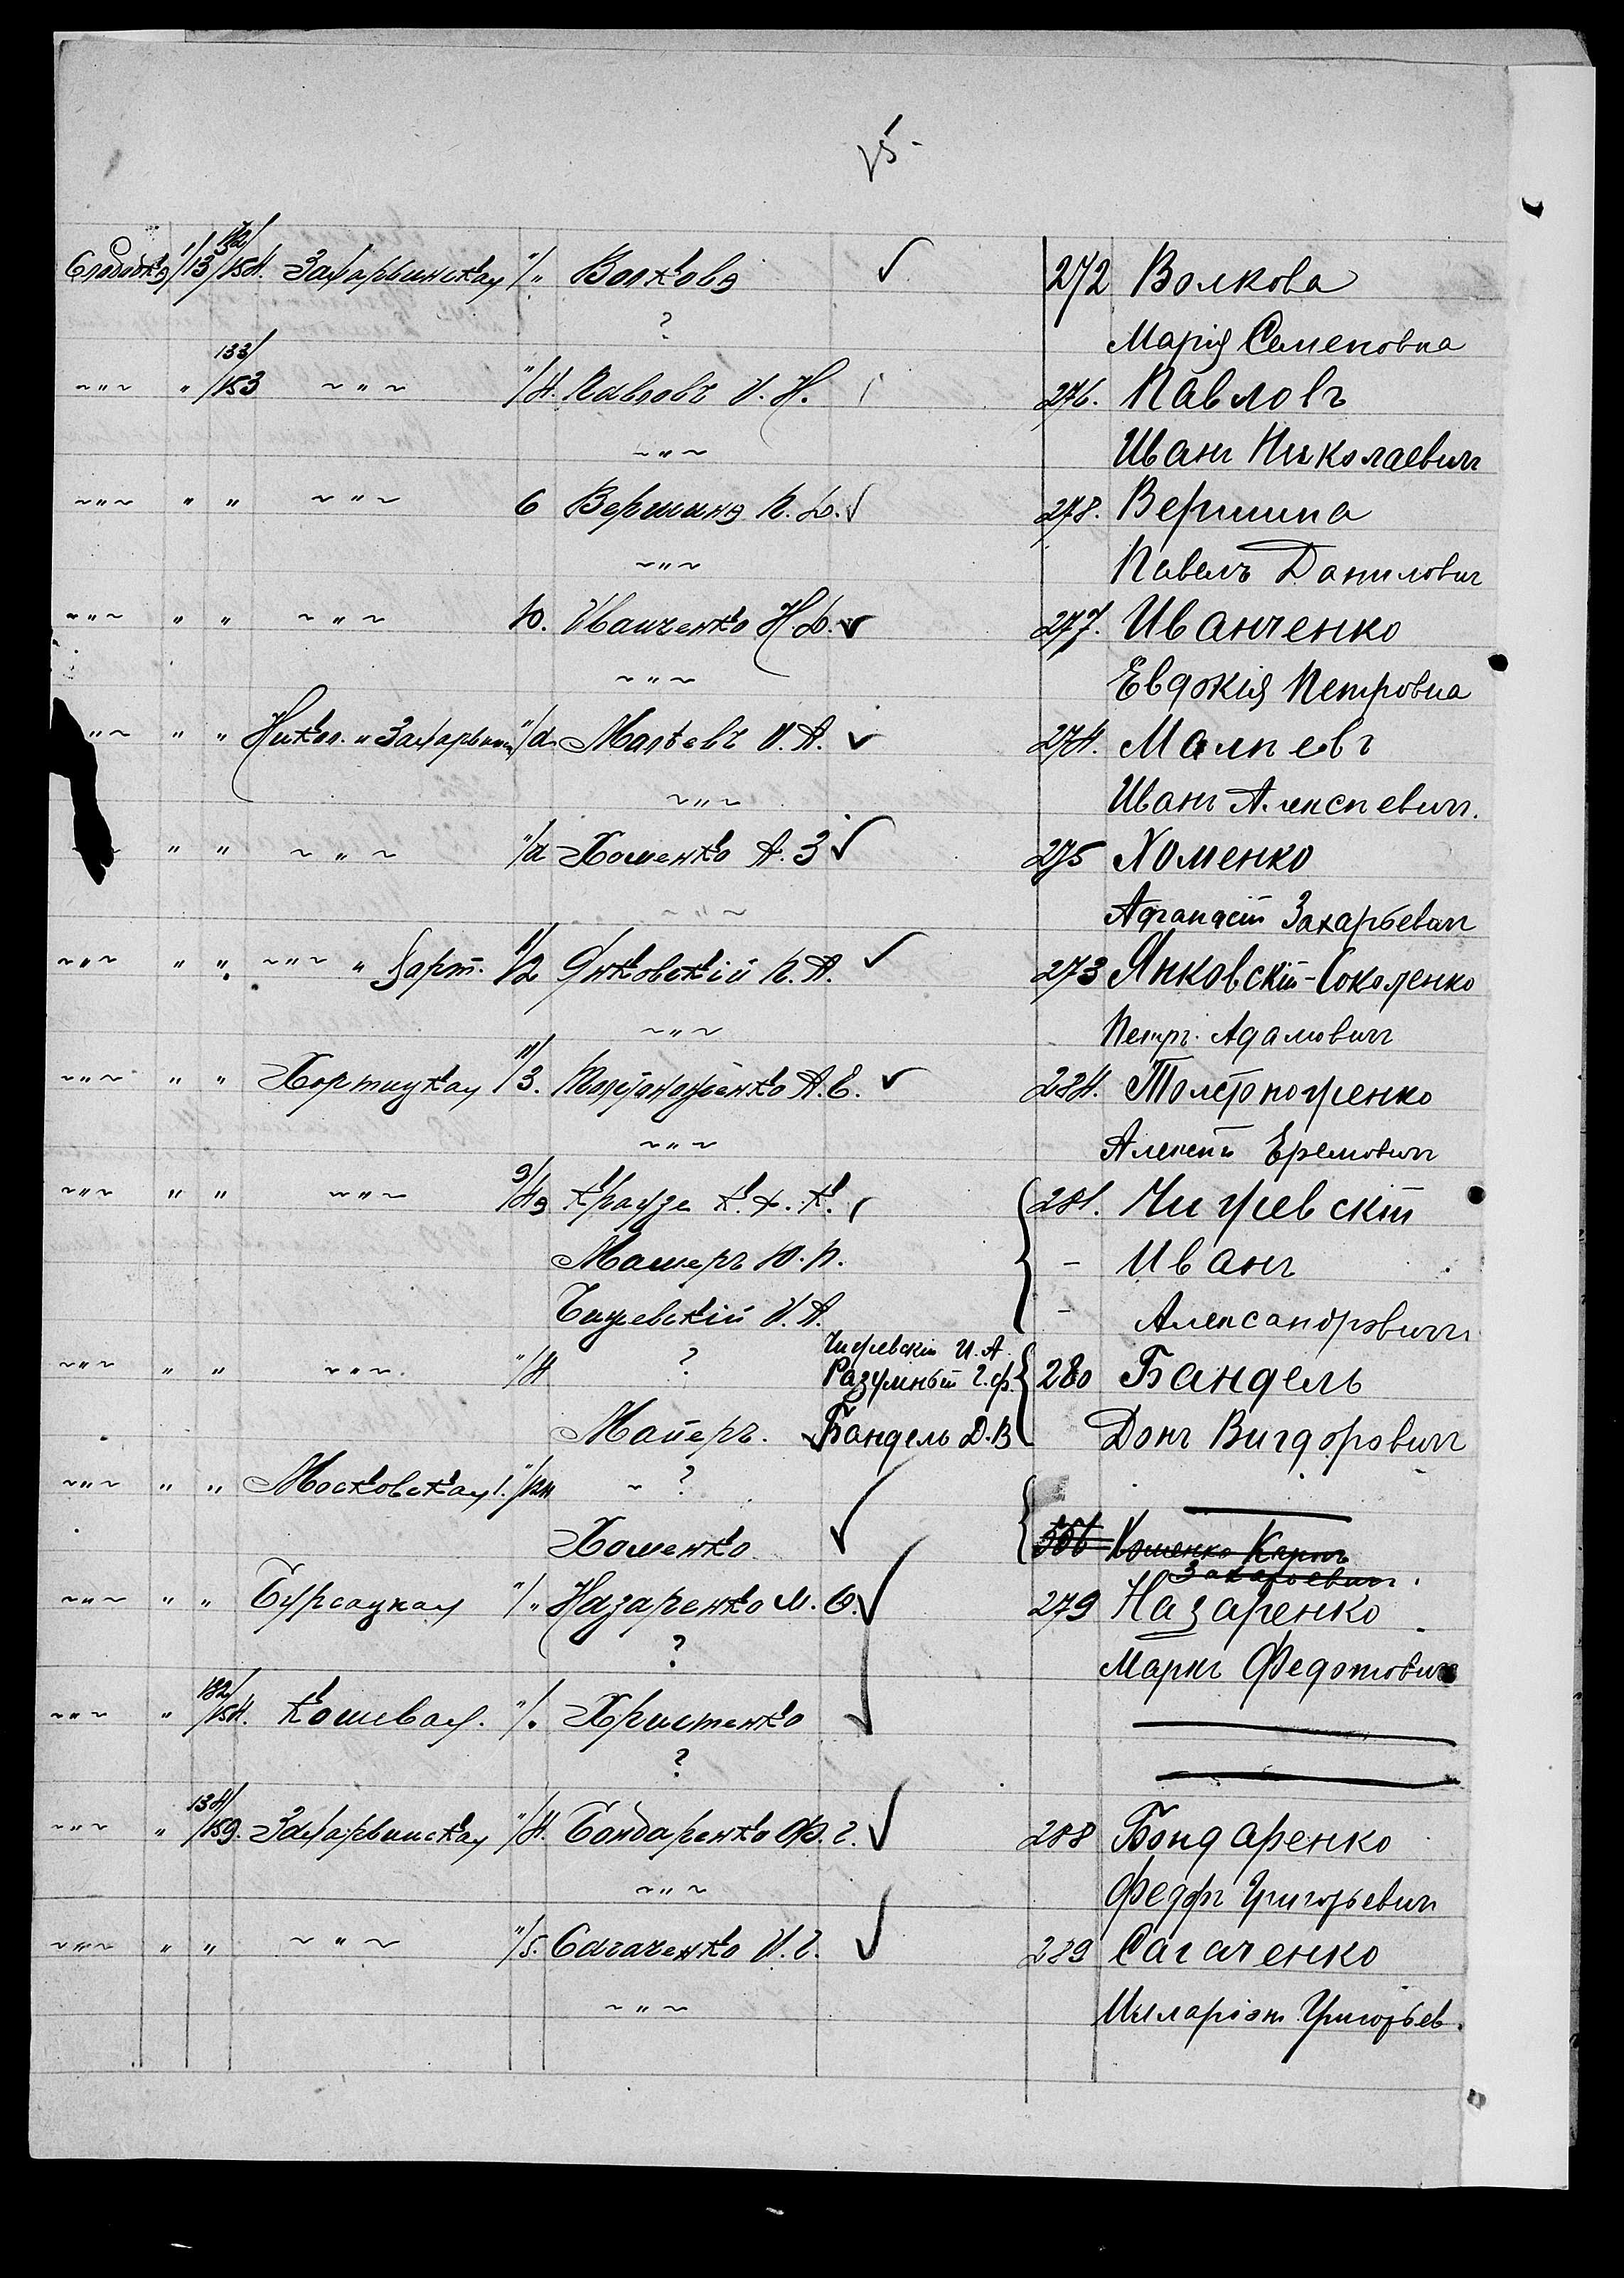 5.
132/
Слободка 1/13 /154. Захарьинская "/" Волкова 272 Волкова
? Марія Семеновна
133/
~"~ " /153 ~"~ "/4. Павловъ И. Н. 276. Павловъ
~"~ Иванъ Николаевичъ
~"~ " " ~"~ 6 Вершина П. Д. 278. Вершина
~"~ Павелъ Даниловичъ
~"~ " " ~"~ 10. Иванченко Н Д. 277. Иванченко
~"~ Евдокія Петровна
~"~ " " Никол. " Захарьинск "/а Малѣевъ И. А. 274. Малѣевъ
~"~ Иванъ Алексѣевичъ.
" " ~"~ "/а Хоменко А. З 275 Хоменко
~"~ Афанасій Захарьевичъ
~"~ " " ~"~ " Хорт. "/2 Янковскій П. А. 273 Янковскій-Соколенко
~"~ Петръ Адамовичъ
~"~ " " Хортицкая "/3. Толстоноженко А. Е. 284. Толстоноженко
~"~ Алексѣй Еремовичъ
~"~ " " ~"~ 9/4а Краузе К. Ф. К. 281. Чижевскій
Машеръ Ю. П. - Иванъ
Чижевскій И. А. - Александровичъ
Чижевскій И. А.
~"~ " " ~"~. "/4 ? Разумный Г. Ф. 280 Бандель
Майеръ. Бандель Д. В Донъ Вигдоровичъ
~"~ " " Московская 1. "/24 ~ ?
Хоменко 306 Хоменко Карпъ
Захарьевичъ.
~"~ " " Бурсацкая "/" Назаренко М. Ф. 279 Назаренко
? Маркъ Федотовичъ
132/
~"~ " /154. Кошевая. "/. Христенко
?
134/
~"~ " /159. Захарьинская "/4. Бондаренко Ф. Г. 288 Бондаренко
~"~ Федоръ Григорьевичъ
~"~ " " ~"~ "/5. Сагаченко И. Г. 289 Сагаченко
~"~ Илларіонъ Григорьев.